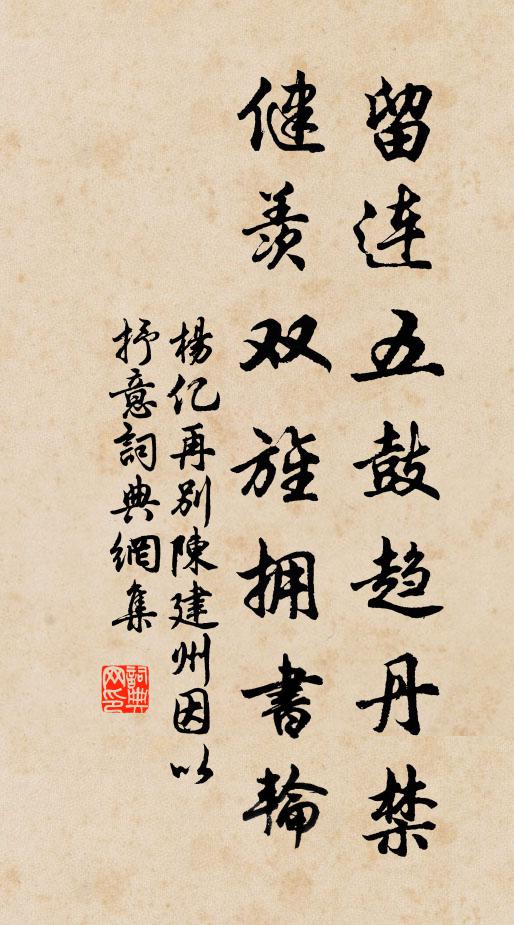 留连五鼓趋丹禁
健羡双旌拥书轮
杨亿再别陈建州因以
抒意词典網集
詞典网印